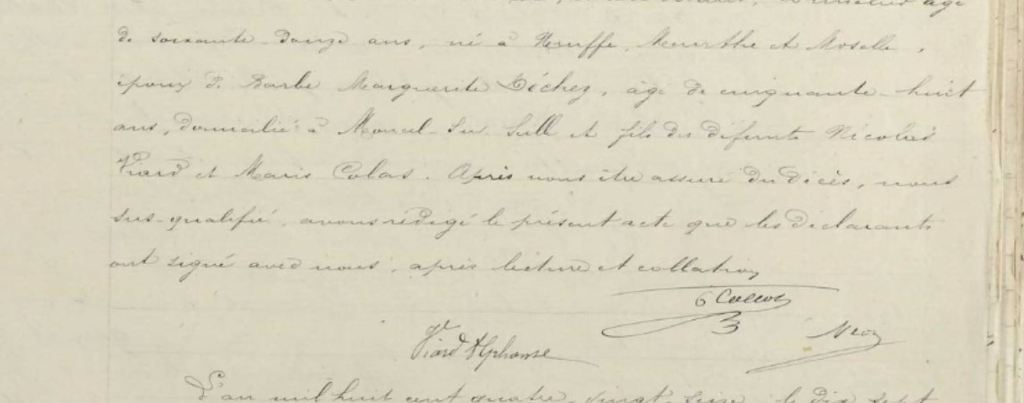 de soixante-douze ans, né à Neuffe, Meurthe et Moselle,
époux de Barbe Marguerite Déchez, âgé de cinquante-huit
ans, domicilié à Morcel-Su Sell et fils des défunts Nicolas
Viard et Marie Colas. Après nous être assuré du décès, nous
sus-qualifié, avons rédigé le présent acte que les déclarants
ont signé avec nous, après lecture et collation
Viard Alphonse
L'an mil huit cent quatre-vingt-seize, le dix sept